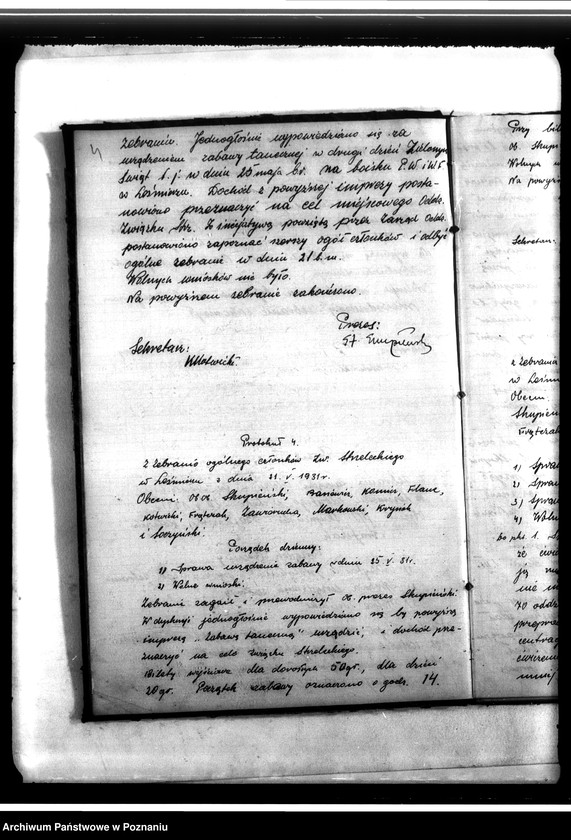 zebraniu. Jednogłośnie wypowiedziano się za
urządzeniem zabawy tanecznej w drugi dzień Zielonych
Świąt t. j. w dniu 25 maja br. na boisku P.W. i W.F.
w Leśmierzu. Dochód z powyższej imprezy posta-
nowiono przeznaczyć na cel miejscowego Oddz.
Związku Strz. Z inicjatywą powziętą przez zarząd Oddz.
postanowiono zapoznać szerszy ogół członków i odbyć
ogólne zebranie w dniu 21 b.m.
Wolnych wniosków nie było.
Na powyższem zebranie zakończono.
Prezes:
Sekretarz:
Protokuł 4.
Z Zebrania ogólnego członków Zw. Strzeleckiego
w Leśmierzu z dnia 21. V. 1931 r.
Obecni: Ob. Ob. Skupieński,
Frątczak, Markowski,
i
Porządek dzienny:
1) Sprawa urządzenia zabawy w dniu 25 V. 31 r.
2) Wolne wnioski.
Zebranie zagaił i przewodniczył ob. prezes Skupieński
W dyskusji jednogłośnie wypowiedziano się by powyższą
imprezę "Zabawę taneczną" urządzić, i dochód prze-
znaczyć na cele Związku Strzeleckiego.
Bilety wejściowe dla dorosłych 50 gr. dla dzieci
20 gr. Początek zabawy oznaczono o godz. 14.
Przy
ob. Skupi
Wolnych
Na powyż
Sekretarz:
z Zebrania
w Leśmi
Obecni:
Skupień
Frątczak
1) Spraw
2) Spraw
3) Spraw
4) Woln
Do pkt. 1.
że
ją
nie
70 oddz
przepra
centrac
ćwicze
Archiwum Państwowe w Poznaniu